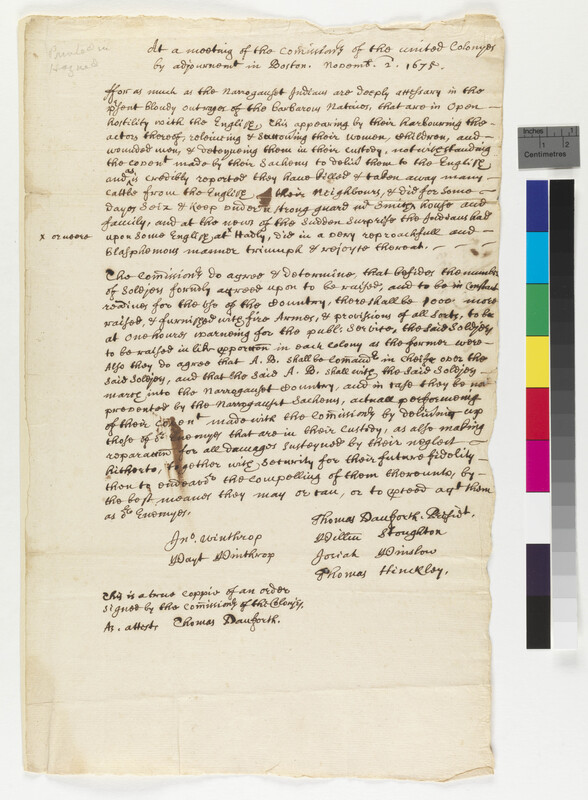 Printed in
Hazard
At a meeting of the Comissionrs of the united Colonyes
by adjournemt in Boston. Novemb. 2. 1675.
fforasmuch as the Narroganset Indians are deeply accessary in the
psent bloudy outrages of the barbarous Natives, that are in open
hostility with the English, This appearing by their harbouring the
actors thereof, releiving & succouring their women, children, and
wounded men, & deteyning them in their custody, notwithstanding
the covent made by their Sachems to deliver them to the English
and as is credibly reported they have killed & taken away many
cattle from the English their Neighbours, & did for some
dayes seiz & keep under a strong guard mr Smiths house and
family, and at the news of the Sudden Surprise the Indians had
x or neere
upon some English at x Hadly, did in a very reproachfull and
blasphemous manner triumph & rejoyce thereat.
The Comissionrs do agree & determine, that besides the number
of Soldjers formrly agreed upon to be raised, and to be in constant
readines for the Use of the Country, there shall be 1000 more
raised, & furnished with fire Armes, & provisions of all sorts, to be
at one hours warneing for the publ: service, the said Soldjers
to be raised in like pportion in each colony as the former were
Also they do agree that A. B. shall be Comandr in cheife over the
said Soldjers, and that the said A. B. shall with the said Soldjers
march into the Narrogansett Country, and in case they be not
prevented by the Narrogansett Sachems, actuall performeing
of their Covent made with the Comissionrs by delivering up
those of or Enemyes that are in their custody, as also making
reparation for all damages susteyned by their neglect
hitherto, together with security for their future fidelity
then to endeavor the compelling of them thereunto, by
the best meanes they may or can, or to pceed agt them
as or Enemyes.
Thomas Danforth. Presidt.
Jno. Winthrop William Stoughton
Wayt Winthrop Josiah Winslow
Thomas Hinckley.
This is a true coppie of an order
signed by the Comissionrs of the Colonyes,
As. attests Thomas Danforth.
Inches
1
2
Centimetres